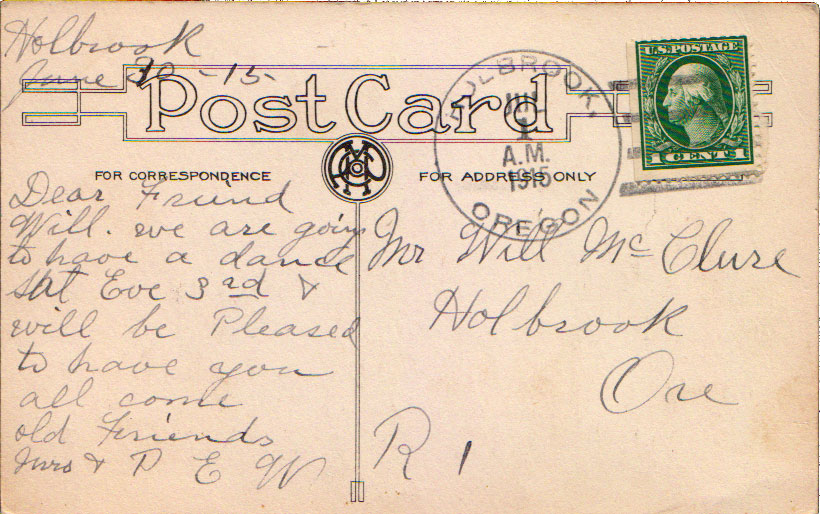 Holbrook
June 30 -15-
Post Card
FOR CORRESPONDENCE
FOR ADDRESS ONLY
HOLBROOK,
JUL
1
A.M.
1915
OREGON
U.S. POSTAGE
1 CENTS 1
Dear Friend
Will. we are going
to have a dance
Sat Eve 3rd &
will be Pleased
to have you
all come
old Friends
Mrs & P E W
Mr Will Mc Clure
Holbrook
Ore
R 1